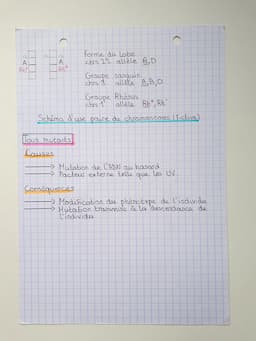 Forme du Lobe
chrs 15 allèle B, D
Groupe sanguin
chrs 9 allèle A, B, O
Groupe Rhésus
chrs 1 allèle Rh+, Rh-
A A
Rh+ Rh+
Schéma d'une paire de chromosomes (Fictive)
Tous mutants
Causes
→ Mutation de l'ADN au hasard
→ Facteur externe telle que les UV.
Conséquences
→ Modification du phénotype de l'individu
→ Mutation transmise à la descendance de
l'individu